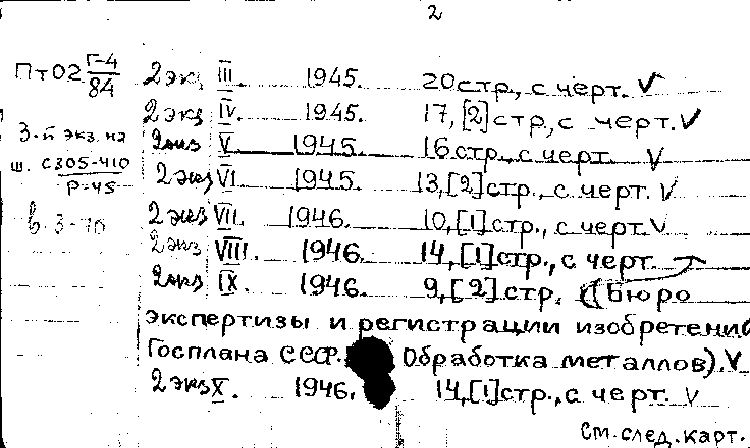 2
ПтО2 Г-4/84 2 экз III. 1945. 20 стр., с черт. V
2 экз IV. 1945. 17, [2] стр., с черт. V
3-й экз. на 2 экз V. 1945. 16 стр., с черт. V
ш. С305-410/Р-45 2 экз VI. 1945. 13, [2] стр., с черт. V
в. 3-70 2 экз VII. 1946. 10, [1] стр., с черт. V
2 экз VIII. 1946. 14, [1] стр., с черт.
2 экз IX. 1946. 9, [2] стр. ((Бюро
экспертизы и регистрации изобретений
Госплана СССР. Обработка металлов). V
2 экз X. 1946. 14, [1] стр., с черт. V
См. след. карт.